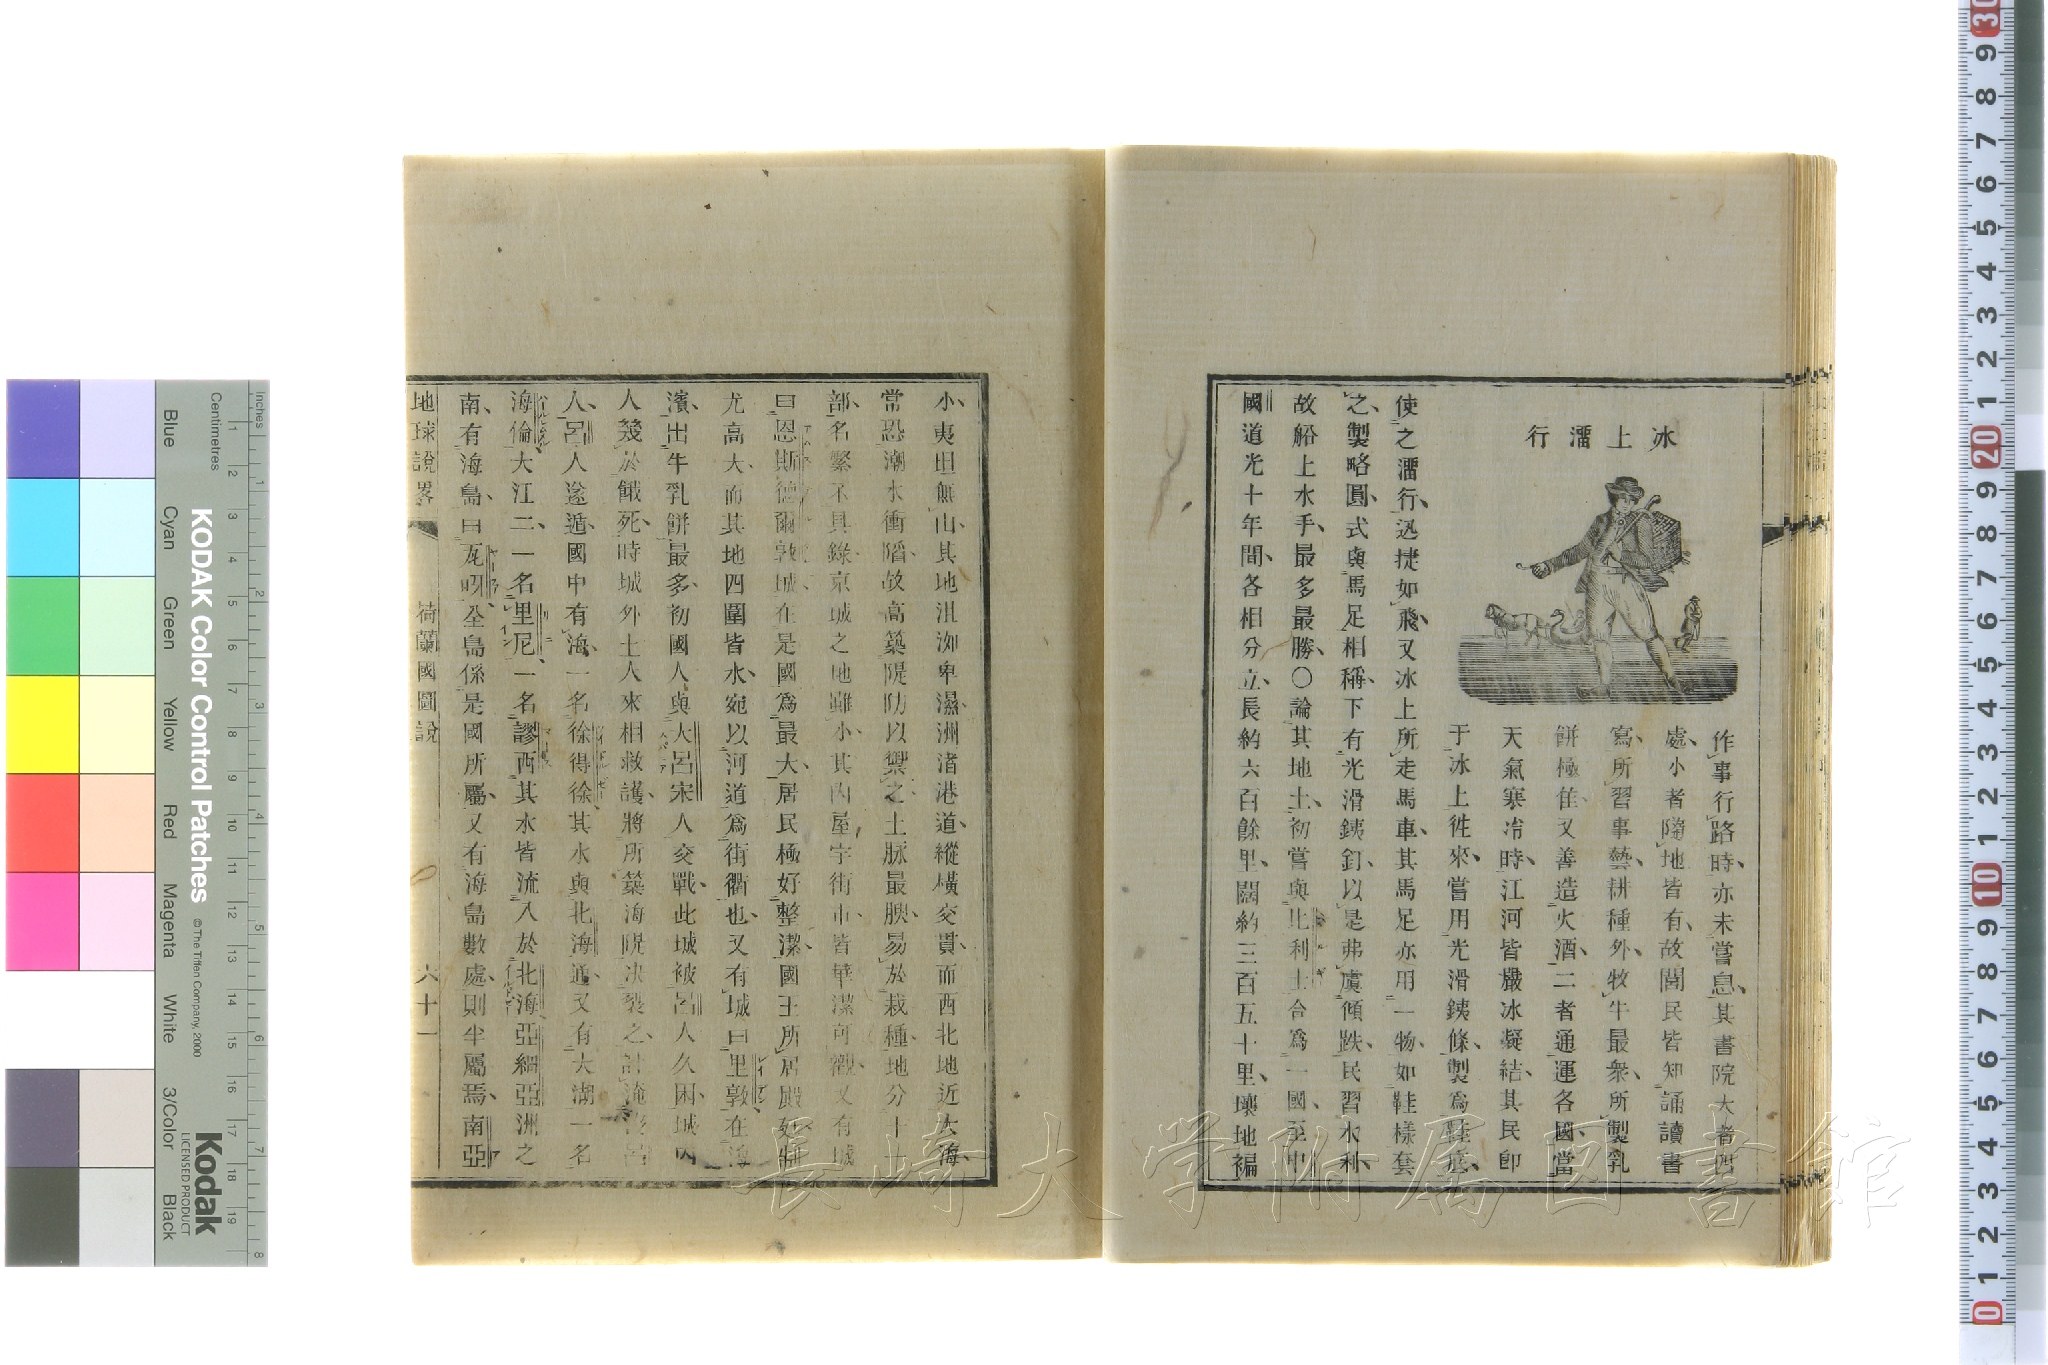 冰上㵧行
作事行路時亦未嘗息其書院大者四
處小者隨地皆有故閭民皆知誦讀書
寫所習事藝耕種外牧牛最衆所製乳
餅極佳又善造火酒二者通運各國當
天氣寒冷時江河皆嚴冰凝結其民即
于冰上徃來嘗用光滑銕條製爲鞋底
使之㵧行迅捷如飛又冰上所走馬車其馬足亦用一物如鞋樣套
之製略圓式與馬足相稱下有光滑銕釘以是弗虞傾跌民習水利
故船上水手最多最勝〇論其地土初嘗與比利士合爲一國至中
國道光十年間各相分立長約六百餘里闊約三百五十里壤地褊
小夷坦無山其地沮洳卑濕洲渚港道縱橫交貫而西北地近大海
常恐潮水衝䧟故高築隄防以禦之土脉最腴易於栽種地分十一
部名繁不具錄京城之地雖小其內屋宇街市皆華潔可觀又有城
曰恩斯德爾敦城在是國爲最大居民極好整潔國王所居殿
尤高大而其地四圍皆水宛以河道爲街衢也又有城曰里敦在海
濱出牛乳餅最多初國人與大呂宋人交戰此城被呂人久困城內
人幾於餓死時城外土人來相救護將所築海隄决裂之計淹
人呂人遂遁國中有海一名徐得徐其水與北海通又有大湖一名
海倫大江二一名里尼一名謬西其水皆流入於北海亞細亞洲之
南有海島曰瓜呀全島係是國所屬又有海島數處則半屬焉南亞
地球說畧 荷蘭國圖說 六十一
KODAK Color Control Patches
© The Tiffen Company, 2000
Kodak
LICENSED PRODUCT
Inches
Centimetres
Blue Cyan Green Yellow Red Magenta White 3/Color Black
長崎大学附属図書館